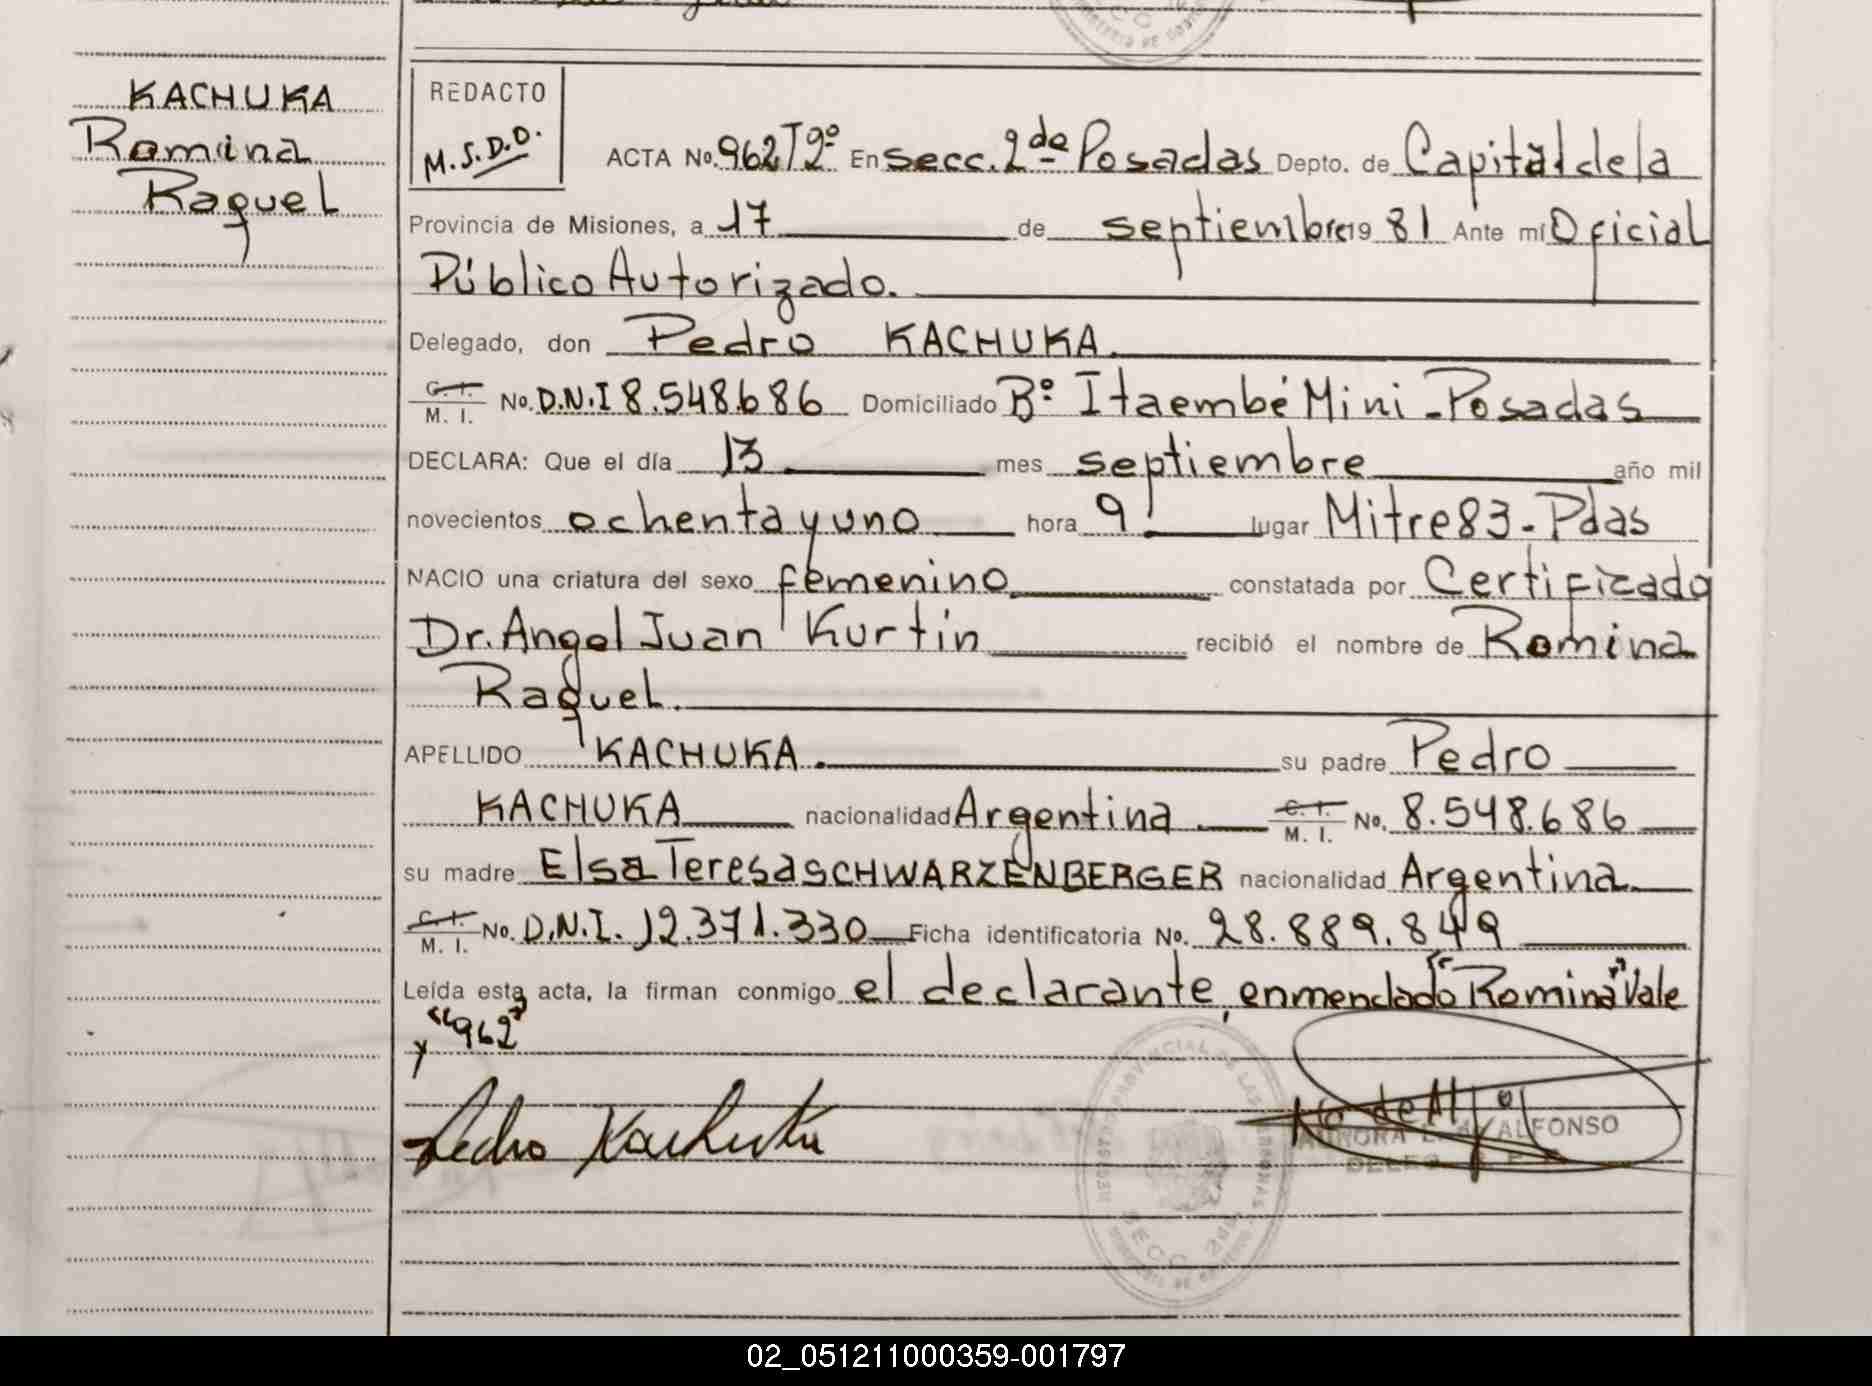 KACHUKA
Romina
Raquel
REDACTO
M.S.D.D.
ACTA No. 962 T2º En secc. 2da Posadas Depto. de Capital de la
Provincia de Misiones, a 17 de septiembre 19 81 Ante mí Oficial
Público Autorizado.
Delegado, don Pedro KACHUKA
C. I.
M. I. No. D.N.I 8.548.686 Domiciliado Bº Itaembé Mini - Posadas
DECLARA: Que el día 13 mes septiembre año mil
novecientos ochenta y uno hora 9 lugar Mitre 83 - Pdas
NACIO una criatura del sexo femenino constatada por Certificado
Dr. Angel Juan Kurtin recibió el nombre de Romina
Raquel.
APELLIDO KACHUKA. su padre Pedro
KACHUKA nacionalidad Argentina C. I.
M. I. No. 8.548.686
su madre Elsa Teresa SCHWARZENBERGER nacionalidad Argentina
C. I.
M. I. No. D.N.I. 12.371.330 Ficha identificatoria No. 28.889.849
Leída esta acta, la firman conmigo el declarante, enmendado "Romina" Vale
y "962"
Pedro Kachuka
REGISTRO PROVINCIAL DE LAS PERSONAS
SECC. 2da
ALFONSO
02_051211000359-001797